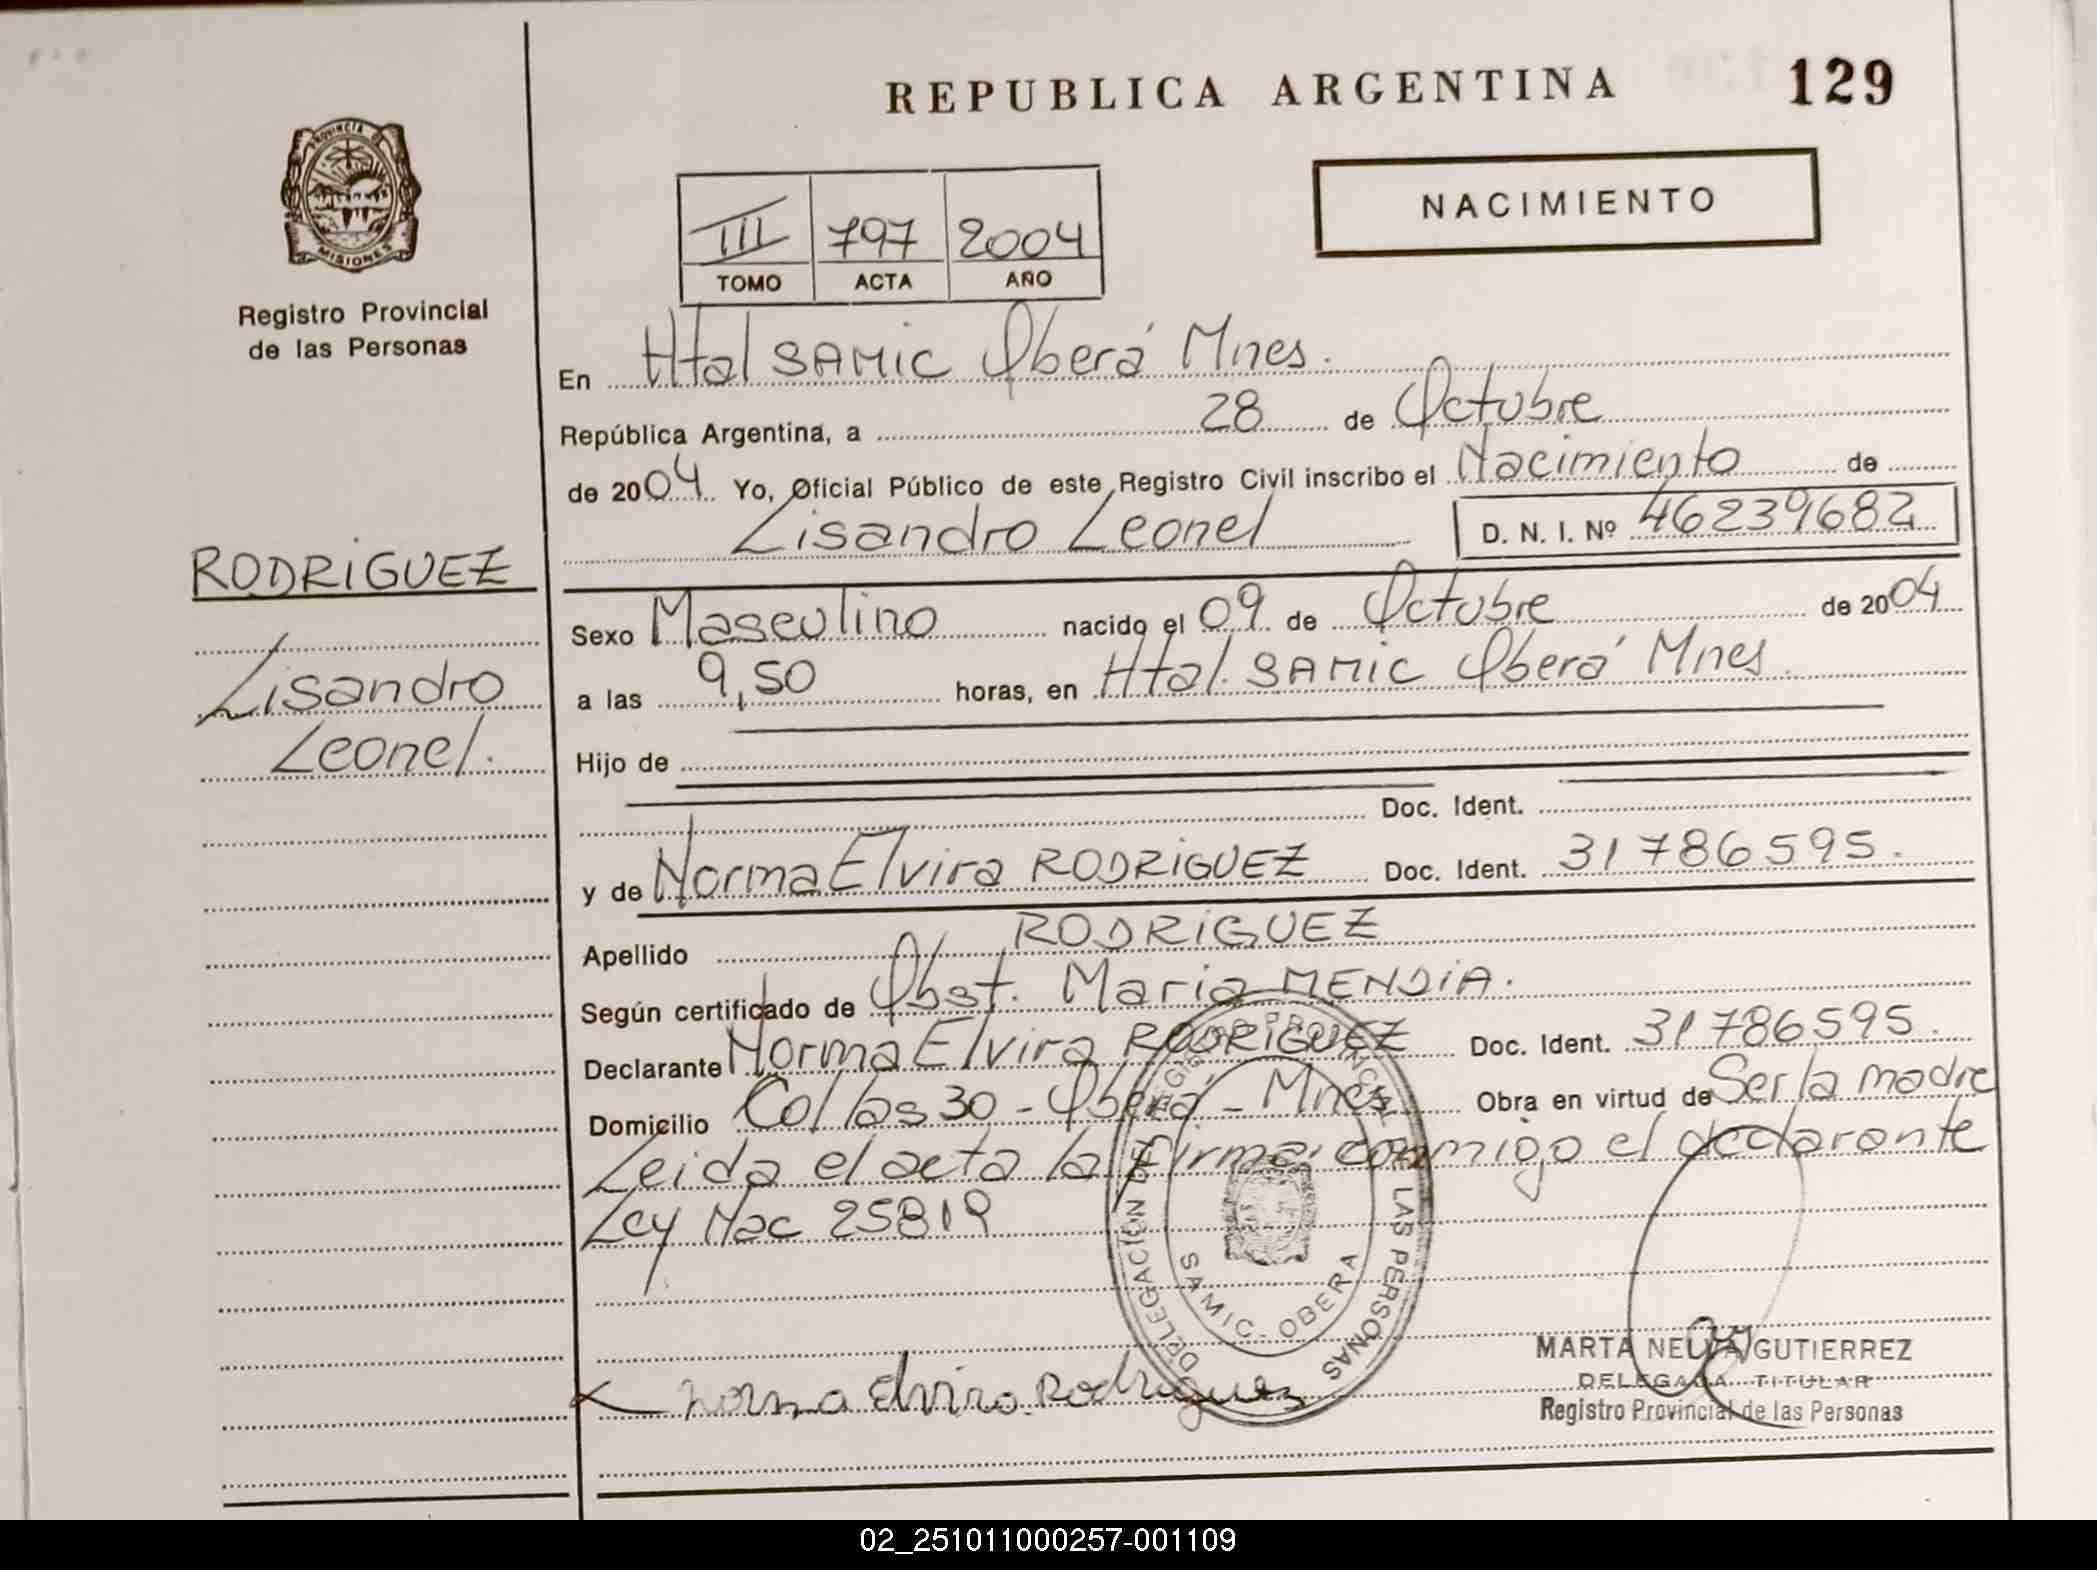 REPUBLICA ARGENTINA 129
PROVINCIA DE
MISIONES
Registro Provincial
de las Personas
NACIMIENTO
III 797 2004
TOMO ACTA AÑO
En Htal SAMIC Oberá Mnes.
República Argentina, a 28 de Octubre
de 2004 Yo, Oficial Público de este Registro Civil inscribo el Nacimiento de
Lisandro Leonel D. N. I. Nº 46239682
RODRIGUEZ
Lisandro
Leonel.
Sexo Masculino nacido el 09 de Octubre de 2004
a las 9,50 horas, en Htal. SAMIC Oberá Mnes.
Hijo de
Doc. Ident.
y de Norma Elvira RODRIGUEZ Doc. Ident. 31786595.
Apellido RODRIGUEZ
Según certificado de Obst. Maria MENDIA.
Declarante Norma Elvira RODRIGUEZ Doc. Ident. 31786595.
Domicilio Collas 30 - Oberá - Mnes Obra en virtud de Ser la madre
Leida el acta la firma conmigo el declarante
Ley Nac 25819
DELEGACION DE LAS PERSONAS
SAMIC - OBERA
Norma Elvira Rodriguez
MARTA NELIDA GUTIERREZ
DELEGADA TITULAR
Registro Provincial de las Personas
02_251011000257-001109